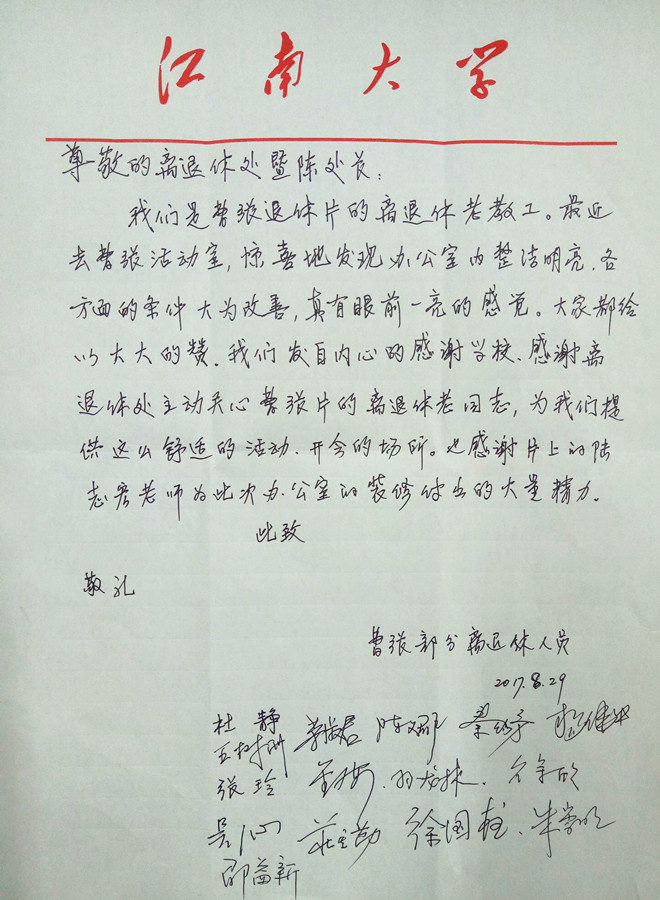 江南大学
尊敬的离退休处暨陈处长：
我们是曹张退休片的离退休老教工。最近
去曹张活动室，惊喜地发现办公室内整洁明亮、各
方面的条件大为改善，真有眼前一亮的感觉。大家都给
以大大的赞。我们发自内心的感谢学校、感谢离
退休处主动关心曹张片的离退休老同志，为我们提
供这么舒适的活动、开会的场所。也感谢片上的陆
志宏老师为此次办公室的装修付出的大量精力。
此致
敬礼
曹张部分离退休人员
2017.8.29
杜静
张玲
庄立勤 徐国
邵益新